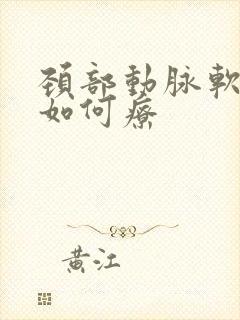 頸部動脉軟
如何療
黄江